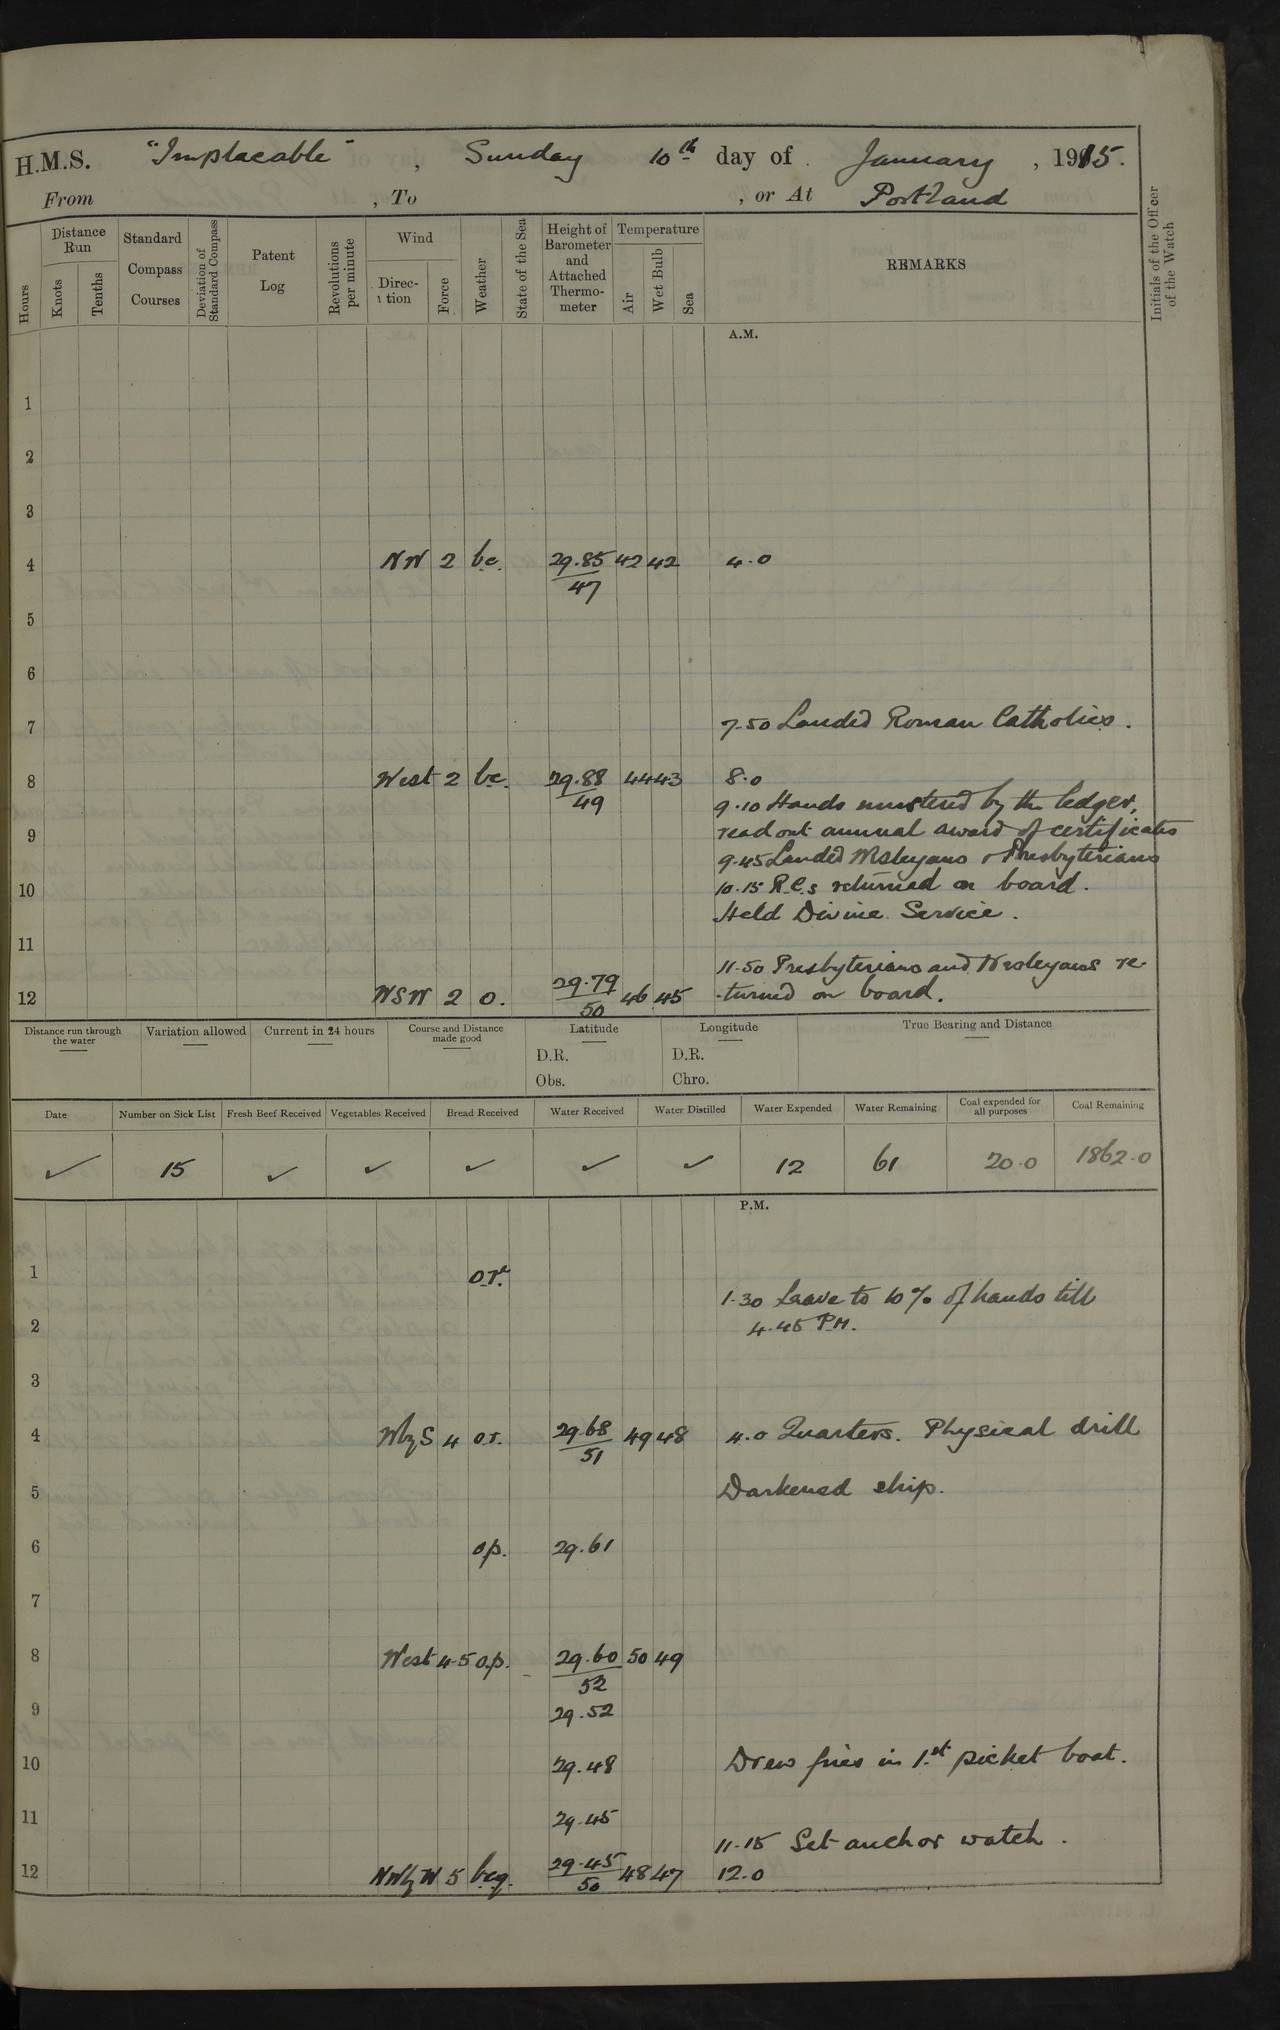 H.M.S. "Implacable", Sunday 10th day of January, 1915.
From , To , or At Portland
Hours
Distance Run
Knots
Tenths
Standard Compass Courses
Deviation of Standard Compass
Patent Log
Revolutions per minute
Wind
Direction
Force
Weather
State of the Sea
Height of Barometer and Attached Thermometer
Temperature
Air
Wet Bulb
Sea
REMARKS
Initials of the Officer of the Watch
A.M.
1
2
3
4 NW 2 b.c. 29.85 42 42 4.0
47
5
6
7 7.50 Landed Roman Catholics.
8 West 2 b.c. 29.88 44 43 8.0
49
9.10 Hands mustered by the ledger,
9 read out annual award of certificates
9.45 Landed Wesleyans & Presbyterians
10 10.15 R.C.s returned on board.
Held Divine Service.
11
11.50 Presbyterians and Wesleyans re-
12 WSW 2 o. 29.79 46 45 -turned on board.
50
Distance run through the water
Variation allowed
Current in 24 hours
Course and Distance made good
Latitude
D.R.
Obs.
Longitude
D.R.
Chro.
True Bearing and Distance
Date Number on Sick List Fresh Beef Received Vegetables Received Bread Received Water Received Water Distilled Water Expended Water Remaining Coal expended for all purposes Coal Remaining
✓ 15 ✓ ✓ ✓ ✓ ✓ 12 61 20.0 1862.0
P.M.
1 o.r.
1.30 Leave to 10% of hands till
2 4.45 P.M.
3
4 WbyS 4 o.r. 29.68 49 48 4.0 Quarters. Physical drill
51
5 Darkened ship.
6 o.p. 29.61
7
8 West 4-5 o.p. 29.60 50 49
52
9 29.52
10 29.48 Drew fires in 1st picket boat.
11 29.45
11.15 Set anchor watch.
12 NWbyW 5 b.c.q. 29.45 48 47 12.0
50